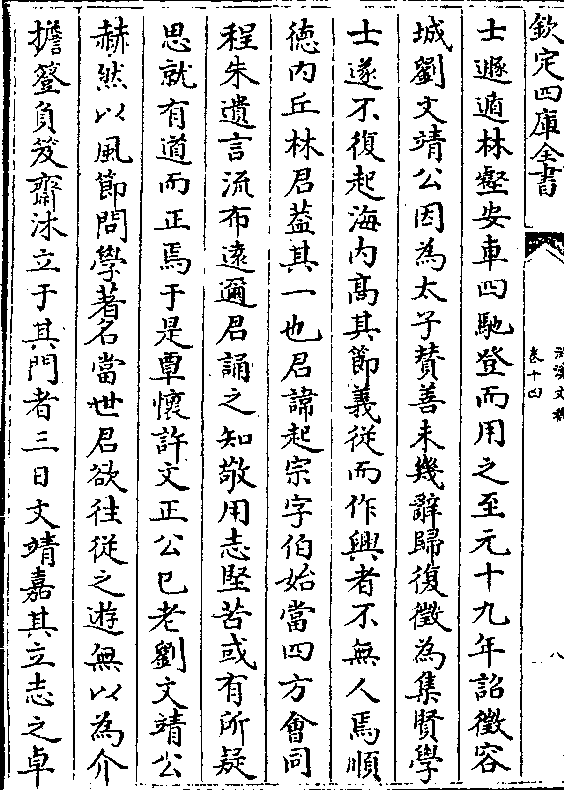 欽定四庫全書
滋溪文稿
卷十四
八
士遯遁林壑安車四馳登而用之至元十九年詔徵容
城劉文靖公因為太子賛善未幾辭歸復徵為集賢學
士遂不復起海内髙其節義従而作興者不無人焉順
徳内丘林君葢其一也君諱起宗字伯始當四方會同
程朱遺言流布逺邇君誦之知敬用志堅苦或有所疑
思就有道而正焉于是覃懷許文正公已老劉文靖公
赫然以風節問學著名當世君欲往從之遊無以為介
擔簦負笈齋沐立于其門者三日文靖嘉其立志之卓